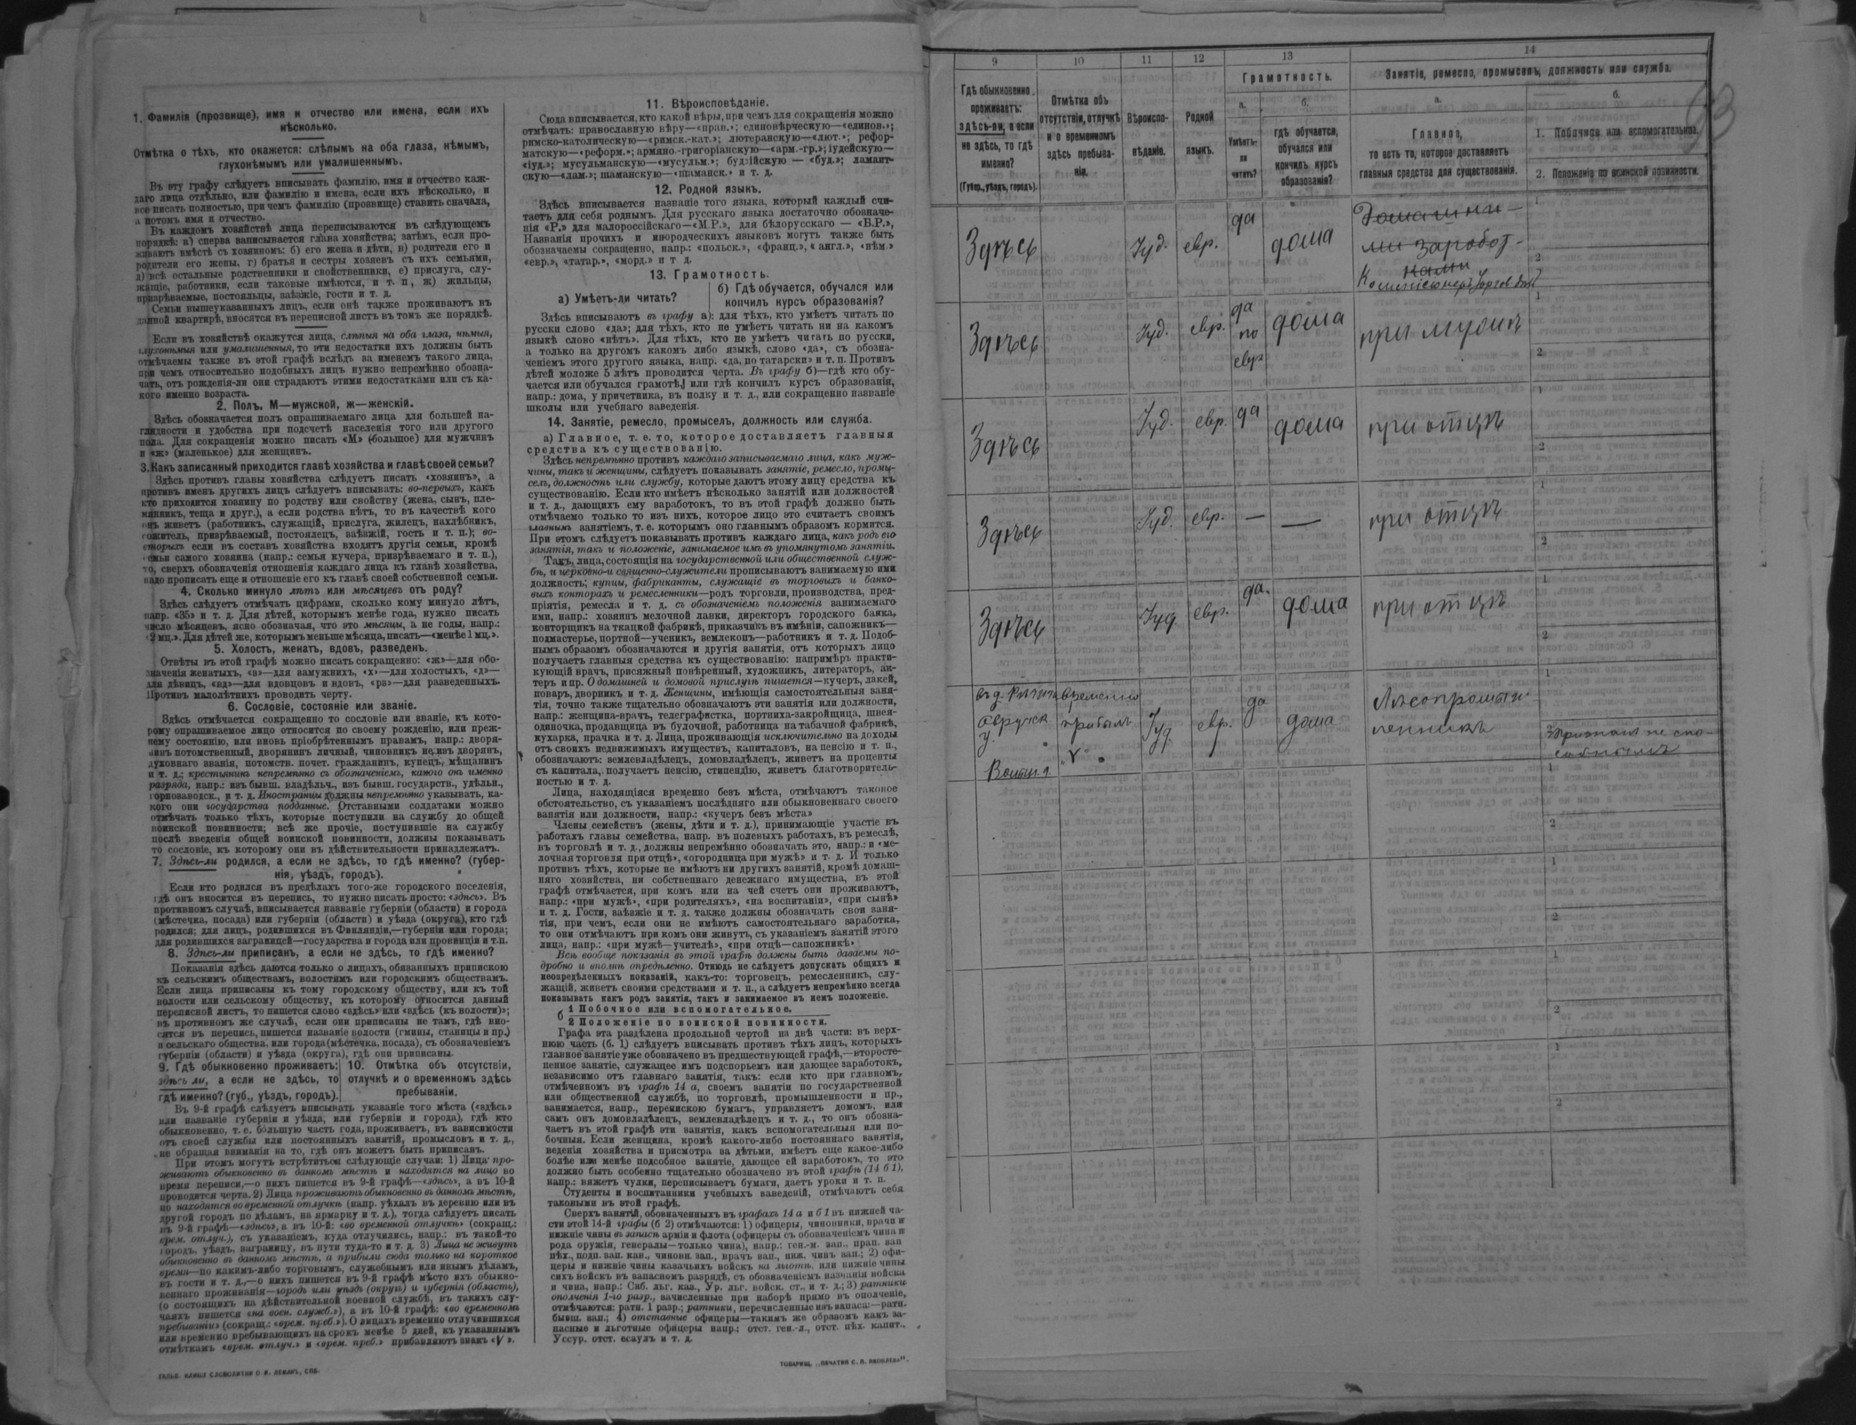 1. Фамилія (прозвище), имя и отчество или имена, если ихъ
нѣсколько.
Отмѣтка о тѣхъ, кто окажется: слѣпымъ на оба глаза, нѣмымъ,
глухонѣмымъ или умалишеннымъ.
Въ эту графу слѣдуетъ вписывать фамилію, имя и отчество каж-
даго лица отдѣльно, или фамилію и имена, если ихъ нѣсколько, и
все писать полностью, при чемъ фамилію (прозвище) ставить сначала,
а потомъ имя и отчество.
Въ каждомъ хозяйствѣ лица переписываются въ слѣдующемъ
порядкѣ: а) сперва записывается глава хозяйства; затѣмъ, если про-
живаютъ вмѣстѣ съ хозяиномъ: б) его жена и дѣти, в) родители его и
родители его жены, г) братья и сестры хозяевъ съ ихъ семьями,
д) всѣ остальные родственники и свойственники, е) прислуга, слу-
жащіе, работники, если таковые имѣются, и т. п., ж) жильцы,
призрѣваемые, постояльцы, заѣзжіе, гости и т. д.
Семьи вышеуказанныхъ лицъ, если онѣ также проживаютъ въ
данной квартирѣ, вносятся въ переписной листъ въ томъ же порядкѣ.
Если въ хозяйствѣ окажутся лица, слѣпыя на оба глаза, нѣмыя,
глухонѣмыя или умалишенныя, то эти недостатки ихъ должны быть
отмѣчаемы также въ этой графѣ вслѣдъ за именемъ такого лица,
при чемъ относительно подобныхъ лицъ нужно непремѣнно обозна-
чать, отъ рожденія-ли они страдаютъ этими недостатками или съ ка-
кого именно возраста.
2. Полъ. М—мужской, ж—женскій.
Здѣсь обозначается полъ опрашиваемаго лица для большей на-
глядности и удобства при подсчетѣ населенія того или другого
пола. Для сокращенія можно писать «М» (большое) для мужчинъ
и «ж» (маленькое) для женщинъ.
3. Какъ записанный приходится главѣ хозяйства и главѣ своей семьи?
Здѣсь противъ главы хозяйства слѣдуетъ писать «хозяинъ», а
противъ именъ другихъ лицъ слѣдуетъ вписывать: во-первыхъ, какъ
кто приходится хозяину по родству или свойству (жена, сынъ, пле-
мянникъ, теща и друг.), а если родства нѣтъ, то въ качествѣ кого
онъ живетъ (работникъ, служащій, прислуга, жилецъ, нахлѣбникъ,
сожитель, призрѣваемый, постоялецъ, заѣзжій, гость и т. п.); во-
вторыхъ если въ составъ хозяйства входятъ другія семьи, кромѣ
семьи самого хозяина (напр.: семья кучера, призрѣваемаго и т. п.),
то, сверхъ обозначенія отношенія каждаго лица къ главѣ хозяйства,
надо прописать еще и отношеніе его къ главѣ своей собственной семьи.
4. Сколько минуло лѣтъ или мѣсяцевъ отъ роду?
Здѣсь слѣдуетъ отмѣчать цифрами, сколько кому минуло лѣтъ,
напр. «35» и т. д. Для дѣтей, которымъ менѣе года, нужно писать
число мѣсяцевъ, ясно обозначая, что это мѣсяцы, а не годы, напр.:
«2 мц.». Для дѣтей же, которымъ меньше мѣсяца, писать—«менѣе 1 мц.».
5. Холостъ, женатъ, вдовъ, разведенъ.
Отвѣты въ этой графѣ можно писать сокращенно: «ж»—для обо-
значенія женатыхъ, «з»—для замужнихъ, «х»—для холостыхъ, «д»—
для дѣвицъ, «вд»—для вдовцовъ и вдовъ, «рз»—для разведенныхъ.
Противъ малолѣтнихъ проводить черту.
6. Сословіе, состояніе или званіе.
Здѣсь отмѣчается сокращенно то сословіе или званіе, къ кото-
рому опрашиваемое лицо относится по своему рожденію, или преж-
нему состоянію, или вновь пріобрѣтеннымъ правамъ, напр.: дворя-
нинъ потомственный, дворянинъ личный, чиновникъ не изъ дворянъ,
духовнаго званія, потомств. почет. гражданинъ, купецъ, мѣщанинъ
и т. д.; крестьянинъ непремѣнно съ обозначеніемъ, какого онъ именно
разряда, напр.: изъ бывш. владѣльч., изъ бывш. государств., удѣльн.,
горнозаводск., и т. д. Иностранцы должны непремѣнно указывать, ка-
кого они государства подданные. Отставными солдатами можно
отмѣчать только тѣхъ, которые поступили на службу до общей
воинской повинности; всѣ же прочіе, поступившіе на службу
послѣ введенія общей воинской повинности, должны показывать
то сословіе, къ которому они въ дѣйствительности принадлежатъ.
7. Здѣсь-ли родился, а если не здѣсь, то гдѣ именно? (губер-
нія, уѣздъ, городъ).
Если кто родился въ предѣлахъ того-же городского поселенія,
гдѣ онъ вносится въ перепись, то нужно писать просто: «здѣсь». Въ
противномъ случаѣ, вписывается названіе губерніи (области) и города
(мѣстечка, посада) или губерніи (области) и уѣзда (округа), кто гдѣ
родился; для лицъ, родившихся въ Финляндіи,—губерніи или города;
для родившихся заграницей—государства и города или провинціи и т.п.
8. Здѣсь-ли приписанъ, а если не здѣсь, то гдѣ именно?
Показанія здѣсь даются только о лицахъ, обязанныхъ припискою
къ сельскимъ обществамъ, волостямъ или городскимъ обществамъ.
Если лица приписаны къ тому городскому обществу, или къ той
волости или сельскому обществу, къ которому относится данный
переписной листъ, то пишется слово «здѣсь» или «здѣсь (къ волости)»;
въ противномъ же случаѣ, если они приписаны не тамъ, гдѣ вно-
сятся въ перепись, пишется названіе волости (гмины, станицы и пр.)
и сельскаго общества, или города (мѣстечка, посада), съ обозначеніемъ
губерніи (области) и уѣзда (округа), гдѣ они приписаны.
9. Гдѣ обыкновенно проживаетъ:
здѣсь ли, а если не здѣсь, то
гдѣ именно? (губ., уѣздъ, городъ).
10. Отмѣтка объ отсутствіи,
отлучкѣ и о временномъ здѣсь
пребываніи.
Въ 9-й графѣ слѣдуетъ вписывать указаніе того мѣста («здѣсь»
или названіе губерніи и уѣзда, или губерніи и города), гдѣ кто
обыкновенно, т. е. большую часть года, проживаетъ, въ зависимости
отъ своей службы или постоянныхъ занятій, промысловъ и т. д.,
не обращая вниманія на то, гдѣ онъ можетъ быть приписанъ.
При этомъ могутъ встрѣтиться слѣдующіе случаи: 1) Лица про-
живаютъ обыкновенно въ данномъ мѣстѣ и находятся на лицо во
время переписи,—о нихъ пишется въ 9-й графѣ—«здѣсь», а въ 10-й
проводится черта. 2) Лица проживаютъ обыкновенно въ данномъ мѣстѣ,
но находятся во временной отлучкѣ (напр. уѣхалъ въ деревню или въ
другой городъ по дѣламъ, на ярмарку и т. д.), тогда слѣдуетъ писать
въ 9-й графѣ—«здѣсь», а въ 10-й: «во временной отлучкѣ» (сокращ.:
врем. отлуч.), съ указаніемъ, куда отлучились, напр.: въ такой-то
городъ, уѣздъ, заграницу, въ пути туда-то и т. д. 3) Лица не живутъ
обыкновенно въ данномъ мѣстѣ, а прибыли сюда только на короткое
время—по какимъ-либо торговымъ, служебнымъ или инымъ дѣламъ,
въ гости и т. д.,—о нихъ пишется въ 9-й графѣ мѣсто ихъ обыкно-
веннаго проживанія—городъ или уѣздъ (округъ) и губернія (область),
(о состоящихъ на дѣйствительной военной службѣ, въ такихъ слу-
чаяхъ пишется «на воен. службѣ»), а въ 10-й графѣ: «во временномъ
пребываніи» (сокращ.: «врем. преб.»). О лицахъ временно отлучившихся
или временно пребывающихъ на срокъ менѣе 5 дней, къ указаннымъ
отмѣткамъ «врем. отлуч.» и «врем. преб.» прибавляютъ знакъ «V».
11. Вѣроисповѣданіе.
Сюда вписывается, кто какой вѣры, при чемъ для сокращенія можно
отмѣчать: православную вѣру—«прав.»; единовѣрческую—«единов.»;
римско-католическую—«римск.-кат.»; лютеранскую—«лют.»; рефор-
матскую—«реформ.»; армяно-григоріанскую—«арм.-гр.»; іудейскую—
«іуд.»; мусульманскую—«мусульм.»; буддійскую — «буд.»; ламаит-
скую—«лам.»; шаманскую—«шаманск.» и т. д.
12. Родной языкъ.
Здѣсь вписывается названіе того языка, который каждый счи-
таетъ для себя роднымъ. Для русскаго языка достаточно обозначе-
нія «Р.», для малороссійскаго—«М.Р.», для бѣлорусскаго — «Б.Р.»,
Названія прочихъ и инородческихъ языковъ могутъ также быть
обозначаемы сокращенно, напр.: «польск.», «франц.», «англ.», «нѣм.»
«евр.», «татар.», «морд.» и т. д.
13. Грамотность.
а) Умѣетъ-ли читать?
б) Гдѣ обучается, обучался или
кончилъ курсъ образованія?
Здѣсь вписываютъ въ графу а): для тѣхъ, кто умѣетъ читать по
русски слово «да»; для тѣхъ, кто не умѣетъ читать ни на какомъ
языкѣ слово «нѣтъ». Для тѣхъ, кто не умѣетъ читать по русски,
а только на другомъ какомъ либо языкѣ, слово «да», съ обозна-
ченіемъ этого другого языка, напр. «да, по татарски» и т. п. Противъ
дѣтей моложе 5 лѣтъ проводится черта. Въ графу б)—гдѣ кто обу-
чается или обучался грамотѣ, или гдѣ кончилъ курсъ образованія,
напр.: дома, у причетника, въ полку и т. д., или сокращенно названіе
школы или учебнаго заведенія.
14. Занятіе, ремесло, промыселъ, должность или служба.
а) Главное, т. е. то, которое доставляетъ главныя
средства къ существованію.
Здѣсь непремѣнно противъ каждаго записываемаго лица, какъ муж-
чины, такъ и женщины, слѣдуетъ показывать занятіе, ремесло, промы-
селъ, должность или службу, которые даютъ этому лицу средства къ
существованію. Если кто имѣетъ нѣсколько занятій или должностей
и т. д., дающихъ ему заработокъ, то въ этой графѣ должно быть
отмѣчаемо только то изъ нихъ, которое лицо это считаетъ своимъ
главнымъ занятіемъ, т. е. которымъ оно главнымъ образомъ кормится.
При этомъ слѣдуетъ показывать противъ каждаго лица, какъ родъ его
занятія, такъ и положеніе, занимаемое имъ въ упомянутомъ занятіи.
Такъ, лица, состоящія на государственной или общественной служ-
бѣ, и церковно-и священно-служители прописываютъ занимаемую ими
должность; купцы, фабриканты, служащіе въ торговыхъ и банко-
выхъ конторахъ и ремесленники—родъ торговли, производства, пред-
пріятія, ремесла и т. д. съ обозначеніемъ положенія занимаемаго
ими, напр.: хозяинъ мелочной лавки, директоръ городского банка,
конторщикъ на ткацкой фабрикѣ, приказчикъ въ имѣніи, сапожникъ—
подмастерье, портной—ученикъ, землекопъ—работникъ и т. д. Подоб-
нымъ образомъ обозначаются и другія занятія, отъ которыхъ лицо
получаетъ главныя средства къ существованію: напримѣръ практи-
кующій врачъ, присяжный повѣренный, художникъ, литераторъ, ак-
теръ и пр. О домашней и домовой прислугѣ пишется—кучеръ, лакей,
поваръ, дворникъ и т. д. Женщины, имѣющія самостоятельныя заня-
тія, точно также тщательно обозначаютъ эти занятія или должности,
напр.: женщина-врачъ, телеграфистка, портниха-закройщица, швея-
одиночка, продавщица въ булочной, работница на табачной фабрикѣ,
кухарка, прачка и т. д. Лица, проживающія исключительно на доходы
отъ своихъ недвижимыхъ имуществъ, капиталовъ, на пенсію и т. п.,
обозначаютъ: землевладѣлецъ, домовладѣлецъ, живетъ на проценты
съ капитала, получаетъ пенсію, стипендію, живетъ благотворитель-
ностью и т. д.
Лица, находящіяся временно безъ мѣста, отмѣчаютъ таковое
обстоятельство, съ указаніемъ послѣдняго или обыкновеннаго своего
занятія или должности, напр.: «кучеръ безъ мѣста»
Члены семействъ (жены, дѣти и т. д.), принимающіе участіе въ
работахъ главы семейства, напр. въ полевыхъ работахъ, въ ремеслѣ,
въ торговлѣ и т. д., должны непремѣнно обозначать это, напр.: и «ме-
лочная торговля при отцѣ», «огородница при мужѣ» и т. д. И только
противъ тѣхъ, которые не имѣютъ ни другихъ занятій, кромѣ домаш-
няго хозяйства, ни собственнаго денежнаго имущества, въ этой
графѣ отмѣчается, при комъ или на чей счетъ они проживаютъ,
напр.: «при мужѣ», «при родителяхъ», «на воспитаніи», «при сынѣ»
и т. д. Гости, заѣзжіе и т. д. также должны обозначать свои заня-
тія, при чемъ, если они не имѣютъ самостоятельнаго заработка,
то они отмѣчаютъ при комъ они живутъ, съ указаніемъ занятій этого
лица, напр.: «при мужѣ—учителѣ», «при отцѣ—сапожникѣ»
Всѣ вообще показанія въ этой графѣ должны быть даваемы по-
дробно и вполнѣ опредѣленно. Отнюдь не слѣдуетъ допускать общихъ и
неопредѣленныхъ показаній, какъ-то: торговецъ, ремесленникъ, слу-
жащій, живетъ своими средствами и т. п., а слѣдуетъ непремѣнно всегда
показывать какъ родъ занятія, такъ и занимаемое въ немъ положеніе.
б 1 Побочное или вспомогательное.
2 Положеніе по воинской повинности.
Графа эта раздѣлена продольной чертой на двѣ части: въ верх-
нюю часть (б. 1) слѣдуетъ вписывать противъ тѣхъ лицъ, которыхъ
главное занятіе уже обозначено въ предшествующей графѣ,—второсте-
пенное занятіе, служащее имъ подспорьемъ или дающее заработокъ,
независимо отъ главнаго занятія, такъ: если кто при главномъ,
отмѣченномъ въ графѣ 14 а, своемъ занятіи по государственной
или общественной службѣ, по торговлѣ, промышленности и пр.,
занимается, напр., перепискою бумагъ, управляетъ домомъ, или
самъ онъ домовладѣлецъ, землевладѣлецъ и т. д., то онъ обозна-
чаетъ въ этой графѣ эти занятія, какъ вспомогательныя или по-
бочныя. Если женщина, кромѣ какого-либо постояннаго занятія,
веденія хозяйства и присмотра за дѣтьми, имѣетъ еще какое-либо
болѣе или менѣе подсобное занятіе, дающее ей заработокъ, то это
должно быть особенно тщательно обозначено въ этой графѣ (14 б 1),
напр.: вяжетъ чулки, переписываетъ бумаги, даетъ уроки и т. п.
Студенты и воспитанники учебныхъ заведеній, отмѣчаютъ себя
таковыми въ этой графѣ.
Сверхъ занятій, обозначенныхъ въ графахъ 14 а и б 1 въ нижней ча-
сти этой 14-й графы (б 2) отмѣчаются: 1) офицеры, чиновники, врачи и
нижніе чины въ запасѣ арміи и флота (офицеры съ обозначеніемъ чина и
рода оружія, генералы—только чина), напр.: ген.-м. зап., прап. зап
пѣх., подп. зап. кав., чиновн. зап., врачъ зап., ниж. чинъ зап.; 2) офи-
церы и нижніе чины казачьихъ войскъ на льготѣ, или нижніе чины
сихъ войскъ въ запасномъ разрядѣ, съ обозначеніемъ названія войска
и чина, напр.: Сиб. льг. каз., Ур. льг. войск. ст., и т. д.; 3) ратники
ополченія 1-го разр., зачисленные при наборѣ прямо въ ополченіе,
отмѣчаются: ратн. 1 разр.; ратники, перечисленные изъ запаса:—ратн.
бывш. зап.; 4) отставные офицеры—такимъ же образомъ какъ за-
пасные и льготные офицеры напр.: отст. ген.-л., отст. пѣх. капит.,
Уссур. отст. есаулъ и т. д.
ТОВАРИЩ. „ПЕЧАТНЯ С. П. ЯКОВЛЕВА".
9 10 11 12 13 14
Гдѣ обыкновенно
проживаетъ:
здѣсь-ли, а если
не здѣсь, то гдѣ
именно?
(Губер., уѣздъ, городъ).
Отмѣтка объ
отсутствіи, отлучкѣ
и о временномъ
здѣсь пребыва-
ніи.
Вѣроиспо-
вѣданіе.
Родной
языкъ.
Грамотность.
а. б.
Умѣетъ-
ли
читать?
гдѣ обучается,
обучался или
кончилъ курсъ
образованія?
Занятіе, ремесло, промыселъ, должность или служба.
а. б.
Главное,
то есть то, которое доставляетъ
главныя средства для существованія.
1. Побочное или вспомогательное.
2. Положеніе по воинской повинности.
Здѣсь Іуд. евр. да дома
Домашни-
ми заработ-
ками
1
2
Здѣсь Іуд. евр. да по евр дома при мужѣ
1
2
Здѣсь Іуд. евр. да дома при отцѣ
1
2
Здѣсь Іуд евр. — — при отцѣ
1
2
Здѣсь Іуд евр. да. дома при отцѣ
1
2
временно
прибылъ
V
Іуд евр. да дома
Лѣсопромыш
ленникъ
1
2 Признанъ не спо-
собнымъ
1
2
1
2
1
2
1
2